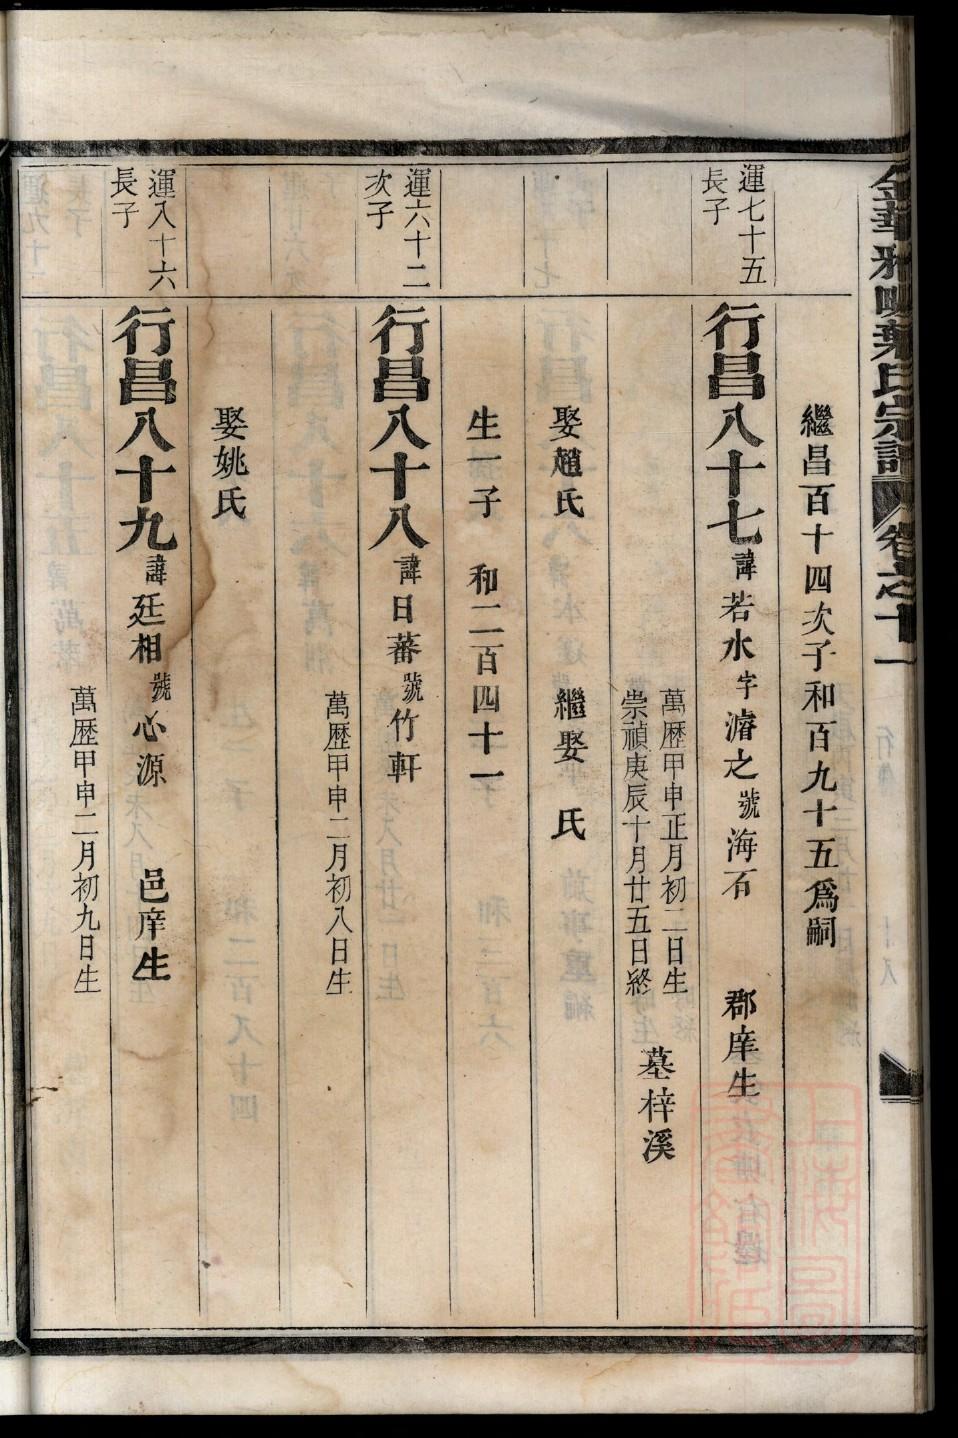 金華雅畈葉氏宗譜 卷之十一
繼昌百十四次子和百九十五爲嗣
運七十五
長子
行昌八十七 諱若水 字濬之 號海石 郡庠生
萬歷甲申正月初二日生
崇禎庚辰十月廿五日終
墓梓溪
娶趙氏 繼娶 氏
生一子 和二百四十一
運六十二
次子
行昌八十八 諱日蕃 號竹軒
萬歷甲申二月初八日生
娶姚氏
運八十六
長子
行昌八十九 諱廷相 號心源 邑庠生
萬歷甲申二月初九日生